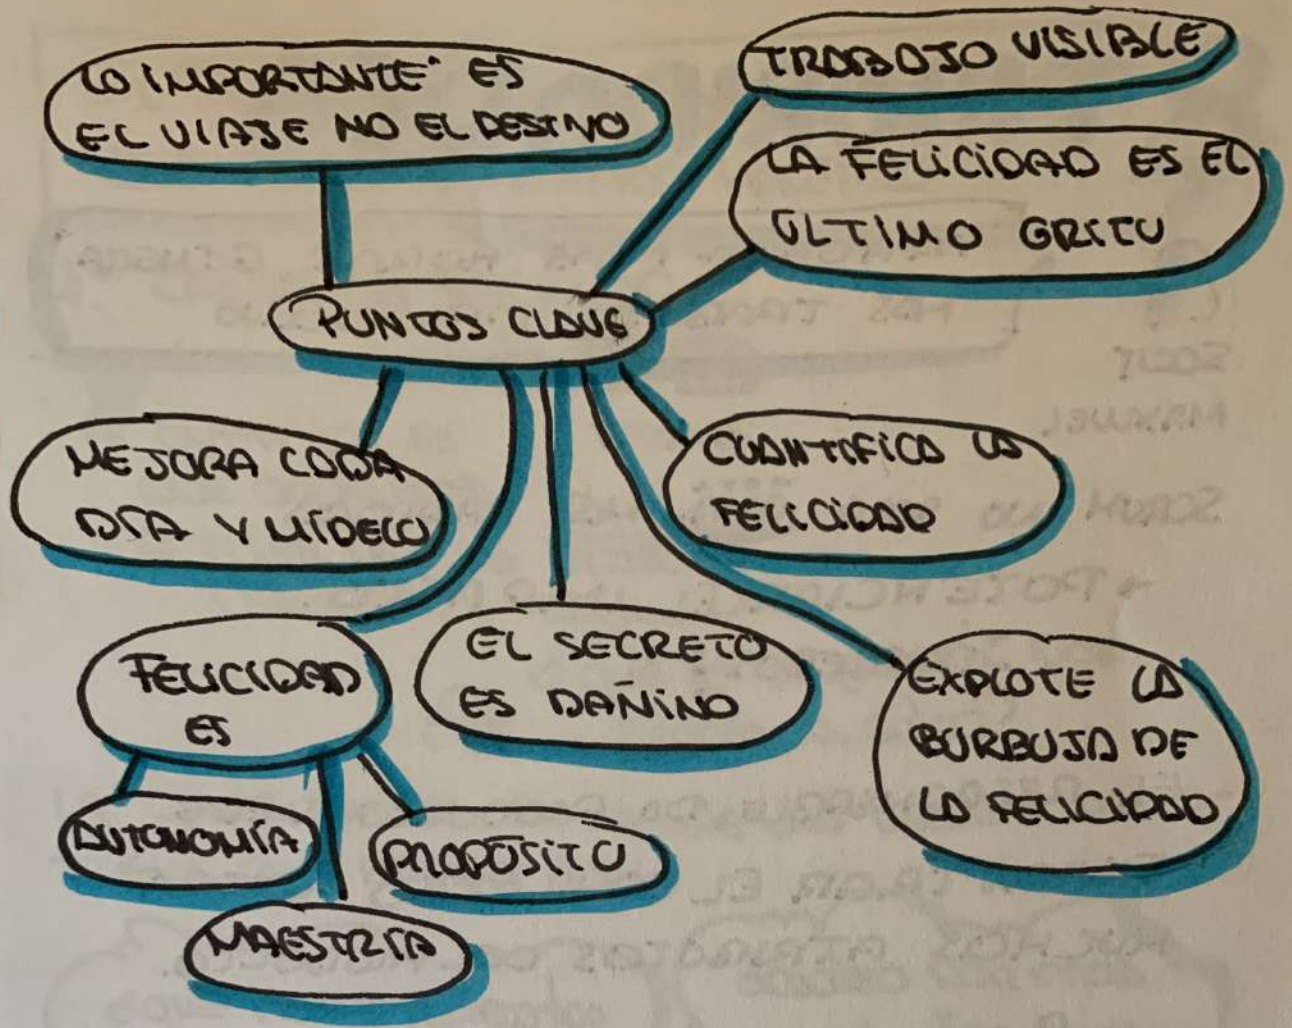 LO IMPORTANTE ES
EL VIAJE NO EL DESTINO
TRABAJO VISIBLE
LA FELICIDAD ES EL
ÚLTIMO GRITO
PUNTOS CLAVE
MEJORA CADA
DÍA Y MÍDELO
CUANTIFICA LA
FELICIDAD
FELICIDAD
ES
EL SECRETO
ES DAÑINO
EXPLOTE LA
BURBUJA DE
LA FELICIDAD
AUTONOMÍA
PROPÓSITO
MAESTRÍA
MANUEL
SCRUM NO